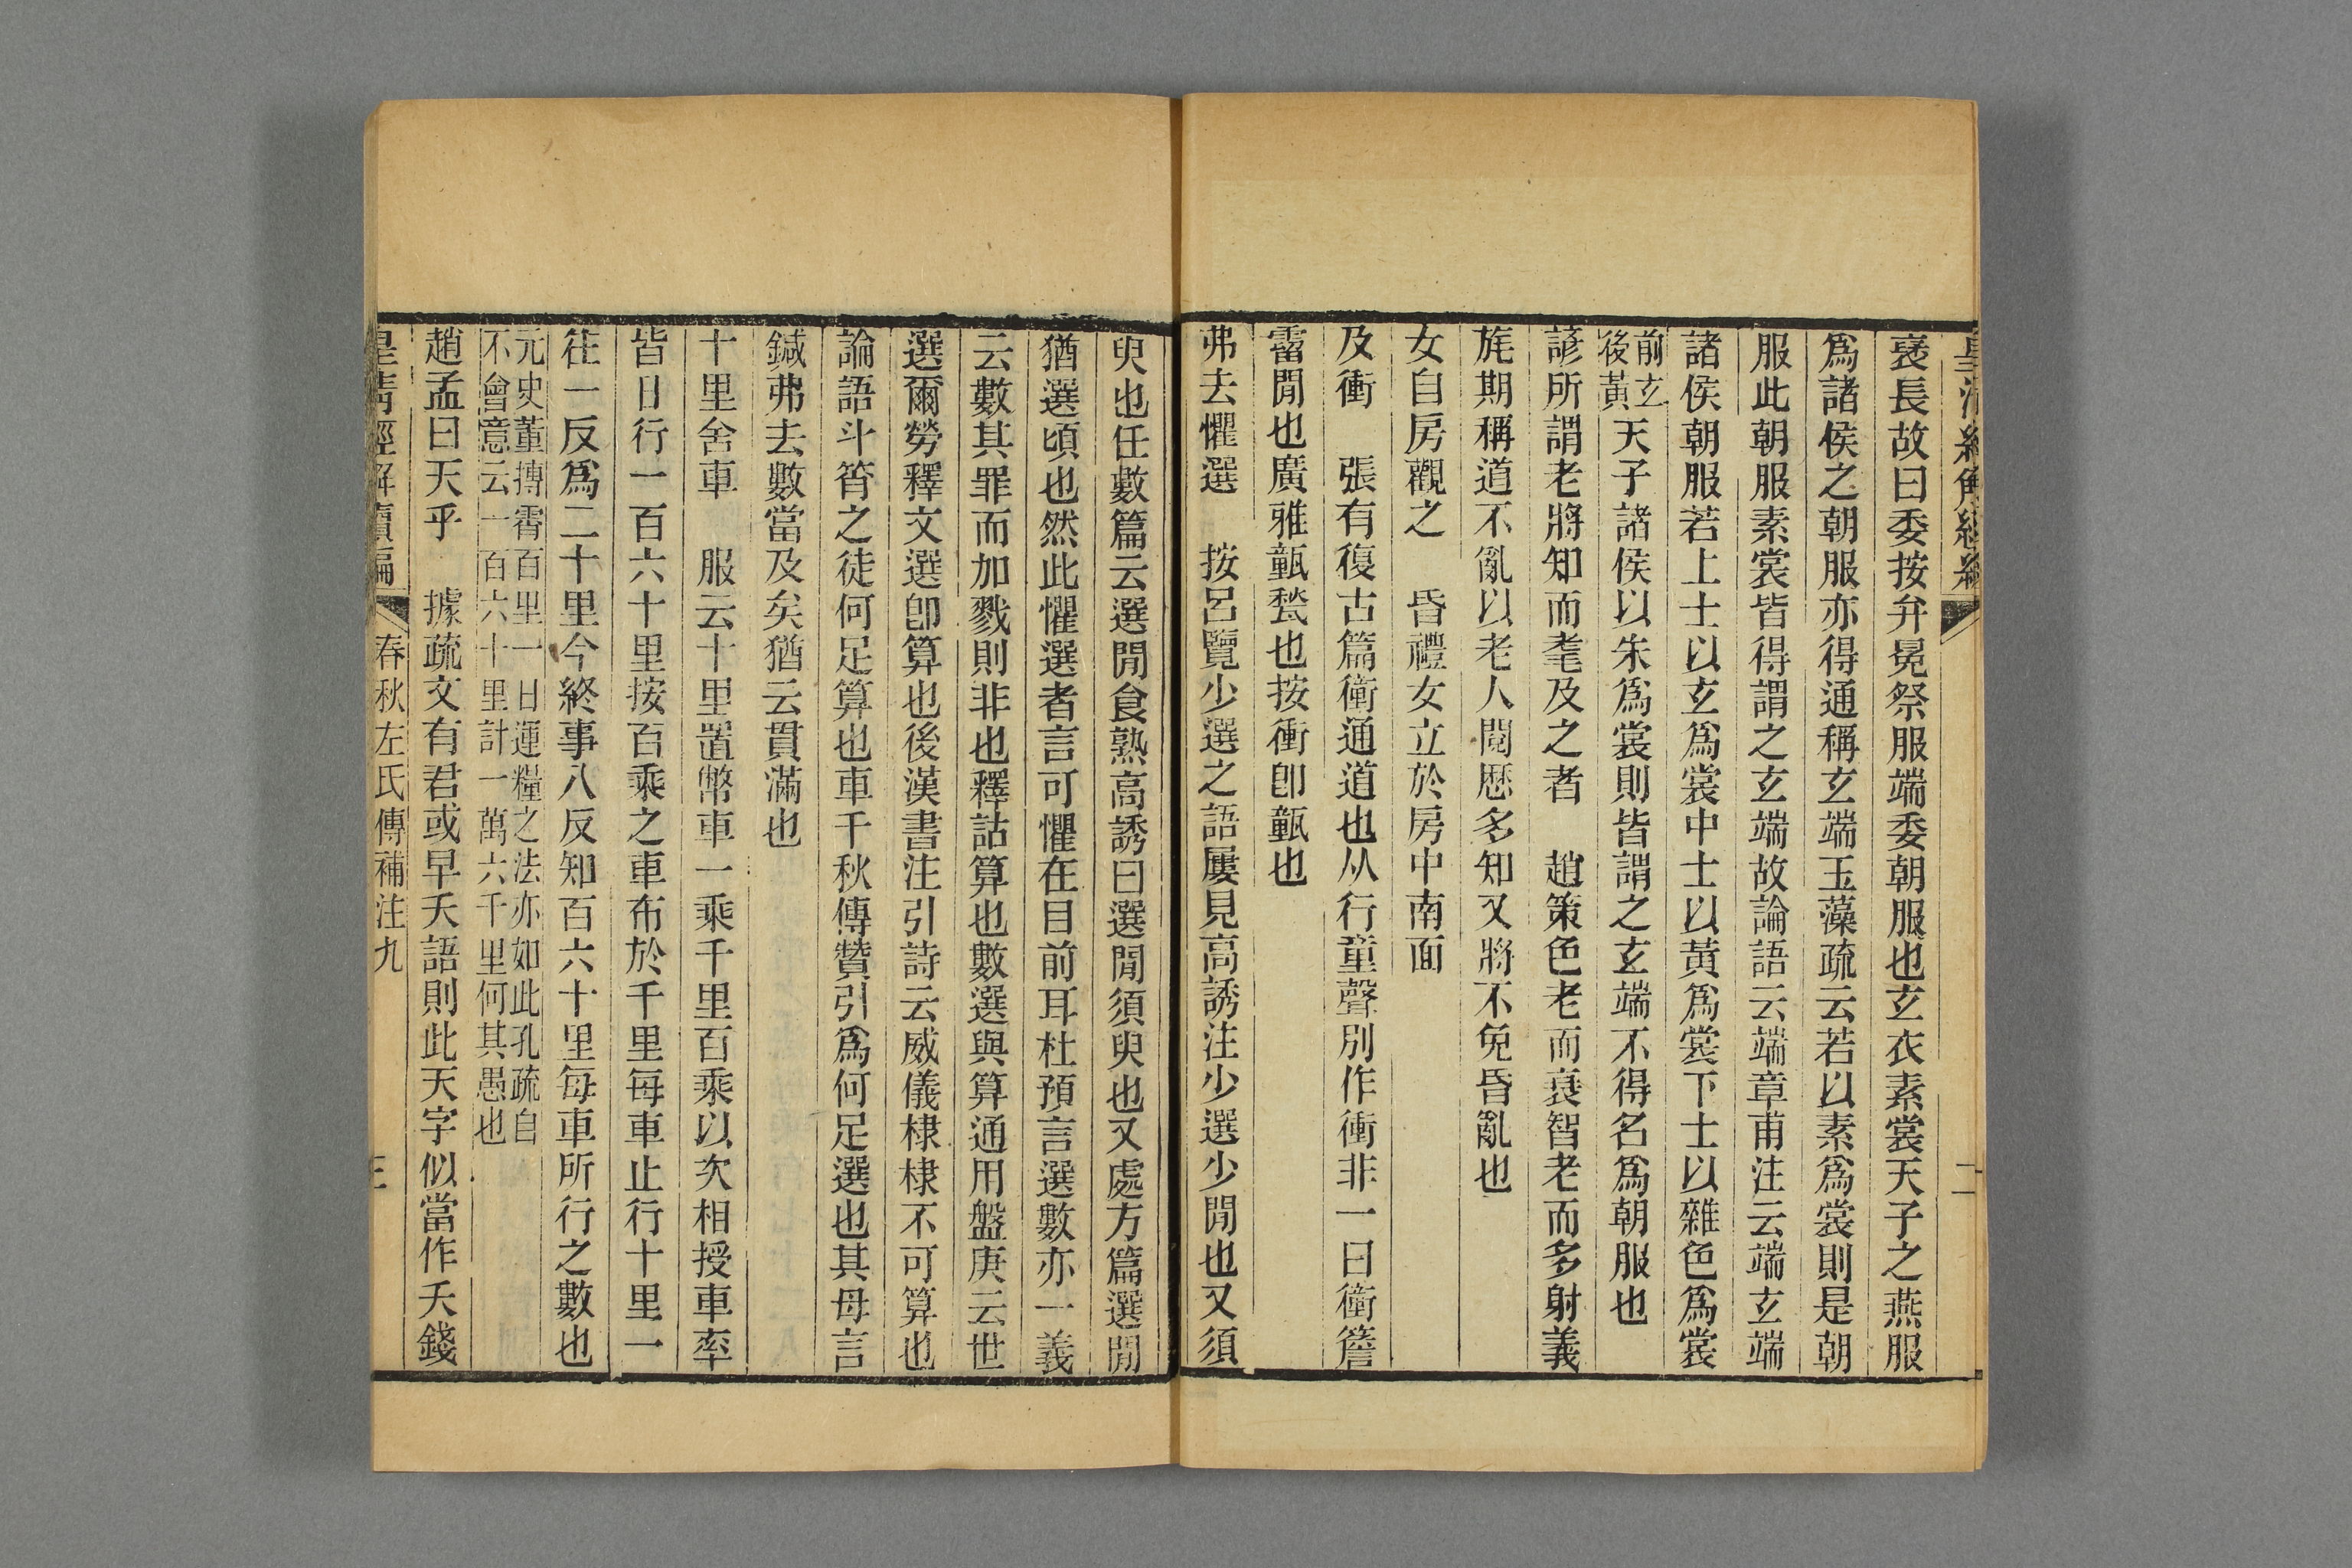 皇清經解續編
二
褒長故曰委按弁冕祭服端委朝服也玄衣素裳天子之燕服
爲諸侯之朝服亦得通稱玄端玉藻疏云若以素爲裳則是朝
服此朝服素裳皆得謂之玄端故論語云端章甫注云端玄端
諸侯朝服若上士以玄爲裳中士以黃爲裳下士以雜色爲裳
前玄
後黃天子諸侯以朱爲裳則皆謂之玄端不得名爲朝服也
諺所謂老將知而耄及之者　趙策色老而衰智老而多射義
旄期稱道不亂以老人閱歷多知又將不免昏亂也
女自房觀之　昏禮女立於房中南面
及衝　張有復古篇衝通道也从行童聲別作衝非一曰衝簷
霤閒也廣雅甀甃也按衝卽甀也
弗去懼選　按呂覽少選之語屢見高誘注少選少閒也又須
臾也任數篇云選閒食熟高誘曰選閒須臾也又處方篇選閒
猶選頃也然此懼選者言可懼在目前耳杜預言選數亦一義
云數其罪而加戮則非也釋詁算也數選與算通用盤庚云世
選爾勞釋文選卽算也後漢書注引詩云威儀棣棣不可算也
論語斗筲之徒何足算也車千秋傳贊引爲何足選也其母言
鍼弗去數當及矣猶云貫滿也
十里舍車　服云十里置幣車一乘千里百乘以次相授車率
皆日行一百六十里按百乘之車布於千里每車止行十里一
往一反爲二十里今終事八反知百六十里每車所行之數也
元史董摶霄百里一日運糧之法亦如此孔疏自
不會意云一百六十里計一萬六千里何其愚也
趙孟曰天乎　據疏文有君或早夭語則此天字似當作夭錢
皇清經解續編
春秋左氏傳補注九
三